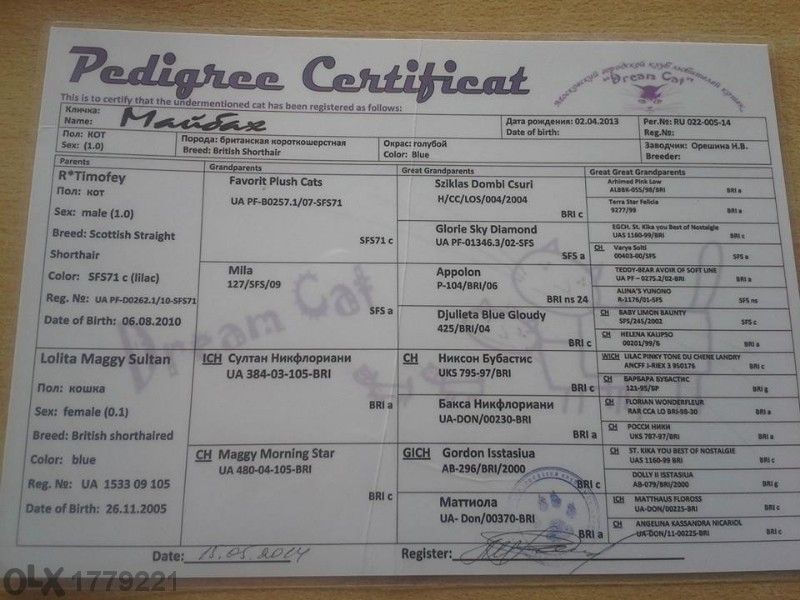 Pedigree Certificat
Московский городской клуб любителей кошек
"Dream Cat"
This is to certify that the undermentioned cat has been registered as follows:
Кличка:
Name: Майбах
Дата рождения: 02.04.2013
Date of birth:
Рег.№: RU 022-005-14
Reg.№:
Пол: КОТ
Sex: (1.0)
Порода: британская короткошерстная
Breed: British Shorthair
Окрас: голубой
Color: Blue
Заводчик: Орешина Н.В.
Breeder:
Parents
R*Timofey
Пол: кот
Sex: male (1.0)
Breed: Scottish Straight
Shorthair
Color: SFS71 c (lilac)
Reg. №: UA PF-D0262.1/10-SFS71
Date of Birth: 06.08.2010
Lolita Maggy Sultan
Пол: кошка
Sex: female (0.1)
Breed: British shorthaired
Color: blue
Reg. №: UA 1533 09 105
Date of Birth: 26.11.2005
Grandparents
Favorit Plush Cats
UA PF-B0257.1/07-SFS71
SFS71 c
Mila
127/SFS/09
SFS a
ICH Султан Никфлориани
UA 384-03-105-BRI
BRI a
CH Maggy Morning Star
UA 480-04-105-BRI
BRI c
Great Grandparents
Sziklas Dombi Csuri
H/CC/LOS/004/2004
BRI c
Glorie Sky Diamond
UA PF-01346.3/02-SFS
SFS a
Appolon
P-104/BRI/06
BRI ns 24
Djulieta Blue Gloudy
425/BRI/04
BRI c
CH Никсон Бубастис
UKS 795-97/BRI
BRI c
Бакса Никфлориани
UA-DON/00230-BRI
BRI a
GICH Gordon Isstasiua
AB-296/BRI/2000
BRI c
Маттиола
UA- Don/00370-BRI
BRI a
Great Great Grandparents
Arhimed Pink Low
ALBBK-055/98/BRI
BRI a
Terra Star Felicia
9277/99
BRI a
EGCH. St. Kika you Best of Nostalgie
UAS 1160-99/BRI
BRI c
CH Varya Solti
00403-00/SFS
SFS a
TEDDY-BEAR AVOIR OF SOFT LINE
UA PF – 0275.2/02-BRI
BRI a
ALINA'S YUNONO
R-1176/01-SFS
SFS ns
CH BABY LIMON BAUNTY
SFS/245/2002
SFS c
CH HELENA KALIPSO
00201/99/S
BRI a
WICH LILAC PINKY TONE DU CHENE LANDRY
ANCFF J-RIEX 3 950176
BRI c
CH ВАРВАРА БУБАСТИС
121-95/BP
BRI g
CH FLORIAN WONDERFLEUR
RAR CCA LO BRI-98-30
BRI a
CH РОССИ НИКИ
UKS 787-97/BRI
BRI a
CH ST. KIKA YOU BEST OF NOSTALGIE
UAS 1160-99 BRI
BRI c
DOLLY II ISSTASIUA
AB-079/BRI/2000
BRI g
ICH MATTHAUS FLOROSS
UA-DON/00225-BRI
BRI c
CH ANGELINA KASSANDRA NICARIOL
UA-DON/11-00225-BRI
BRI a
Dream Cat
Date: 15.05.2014
Register:
OLX 1779221